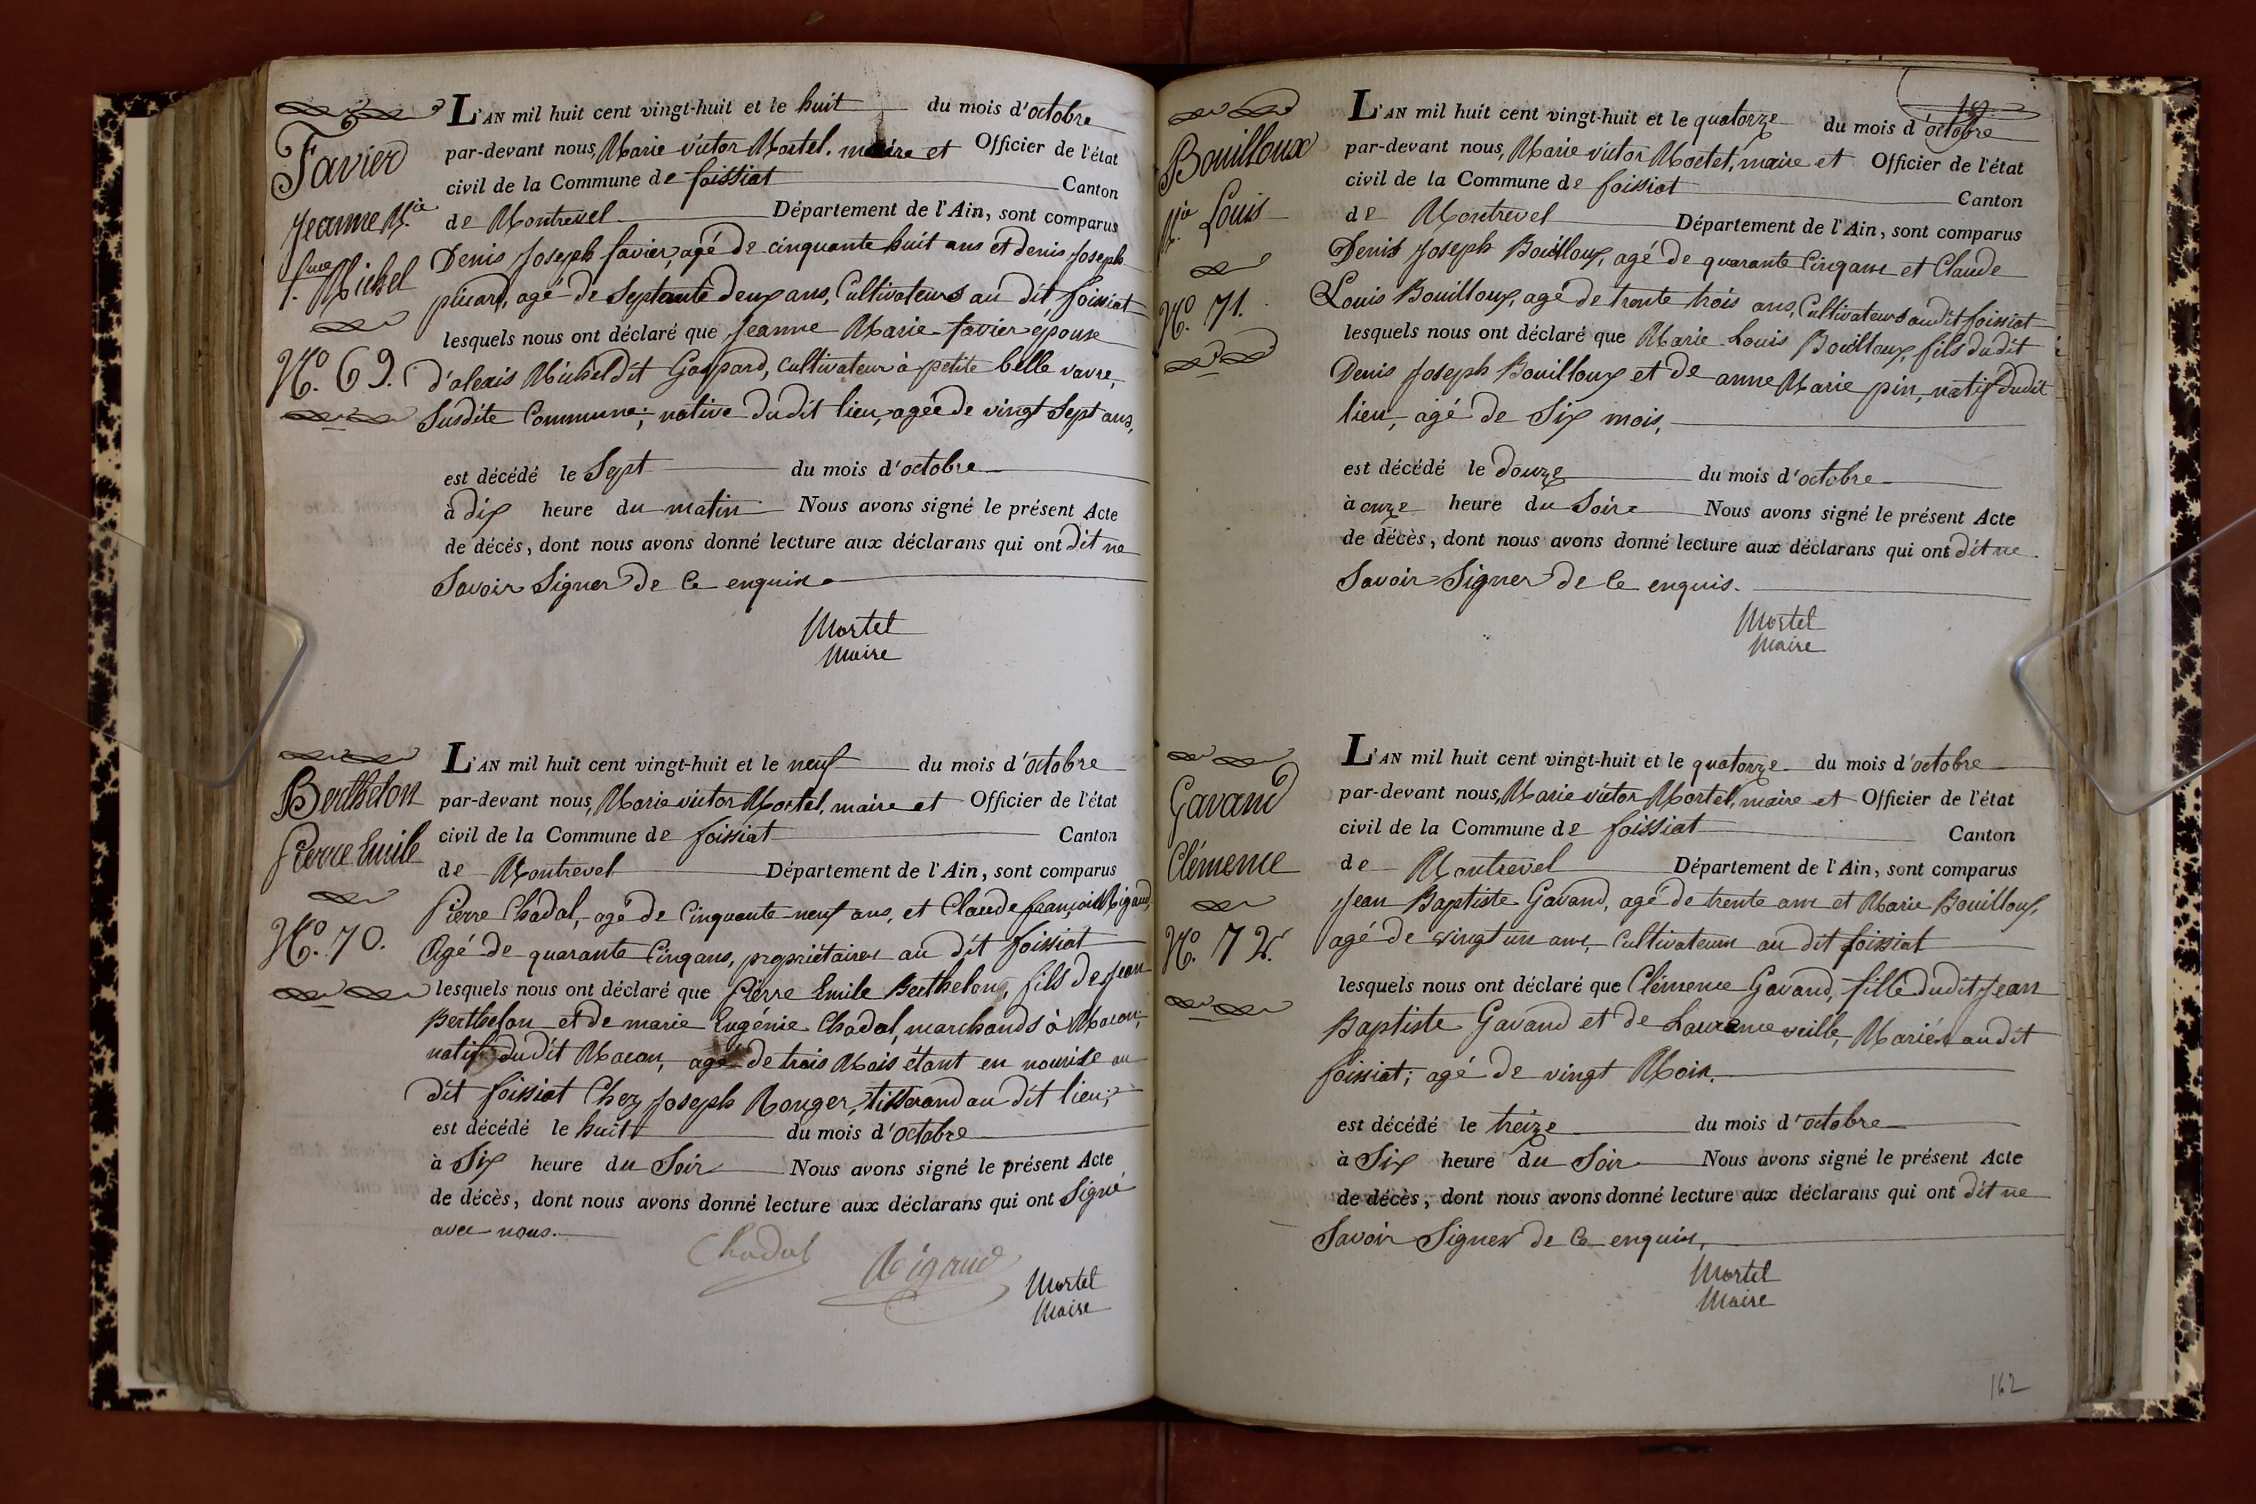 Favier
Jeanne M.ie
f.me Michel
N.o 69.
L'AN mil huit cent vingt-huit et le huit du mois d'octobre
par-devant nous, Marie victor Mortel, maire et Officier de l'état
civil de la Commune de foissiat Canton
de Montrevel Département de l'Ain, sont comparus
Denis Joseph favier, agé de cinquante huit ans et denis Joseph
picard, agé de Septante deux ans, Cultivateurs au dit foissiat
lesquels nous ont déclaré que Jeanne Marie favier epouse
d'alexis Michel dit Gaspard, cultivateur à petite belle vavre,
Susdite Commune; native dudit lieu, agée de vingt Sept ans,
est décédé le Sept du mois d'octobre
à dix heure du matin Nous avons signé le présent Acte
de décés, dont nous avons donné lecture aux déclarans qui ont dit ne
Savoir Signer de Ce enquis
Mortel
Maire
Berthelon
Pierre Emile
N.o 70.
L'AN mil huit cent vingt-huit et le neuf du mois d'octobre
par-devant nous, Marie victor Mortel, maire et Officier de l'état
civil de la Commune de foissiat Canton
de Montrevel Département de l'Ain, sont comparus
Pierre Chadal, agé de Cinquante neuf ans, et Claude françois Rigaud,
Agé de quarante Cinq ans, propriétaires au dit foissiat
lesquels nous ont déclaré que Pierre Emile Berthelon, fils de Jean
Berthelon et de marie Eugénie Chadal, marchands à Macon,
natif dudit Macon, agé de trois Mois étant en nourice au
dit foissiat Chez Joseph Ronger, tisserand au dit lieu;
est décédé le huit du mois d'octobre
à Six heure du Soir Nous avons signé le présent Acte
de décès, dont nous avons donné lecture aux déclarans qui ont Signé
avec nous.
Chadal Rigaud Mortel
Maire
18
Bouilloux
M.ie Louis
N.o 71.
L'AN mil huit cent vingt-huit et le quatorze du mois d'octobre
par-devant nous, Marie victor Mortel, maire et Officier de l'état
civil de la Commune de foissiat Canton
de Montrevel Département de l'Ain, sont comparus
Denis Joseph Bouilloux, agé de quarante Cinq ans et Claude
Louis Bouilloux, agé de trente trois ans, Cultivateurs audit foissiat
lesquels nous ont déclaré que Marie Louis Bouilloux, fils dudit
Denis Joseph Bouilloux et de anne Marie pin, natif dudit
lieu, agé de Six mois,
est décédé le douze du mois d'octobre
à onze heure du Soir Nous avons signé le présent Acte
de décès, dont nous avons donné lecture aux déclarans qui ont dit ne
Savoir Signer de Ce enquis.
Mortel
Maire
Gavand
Clémence
N.o 72.
L'AN mil huit cent vingt-huit et le quatorze du mois d'octobre
par-devant nous, Marie victor Mortel, maire et Officier de l'état
civil de la Commune de foissiat Canton
de Montrevel Département de l'Ain, sont comparus
Jean Baptiste Gavand, agé de trente ans et Marie Bouilloux,
agé de vingt un ans, Cultivateurs au dit foissiat
lesquels nous ont déclaré que Clémence Gavand, fille dudit Jean
Baptiste Gavand et de Laurence veille, Mariés au dit
foissiat; agé de vingt Mois.
est décédé le treize du mois d'octobre
à Six heure du Soir Nous avons signé le présent Acte
de décès, dont nous avons donné lecture aux déclarans qui ont dit ne
Savoir Signer de Ce enquis,
Mortel
Maire
162